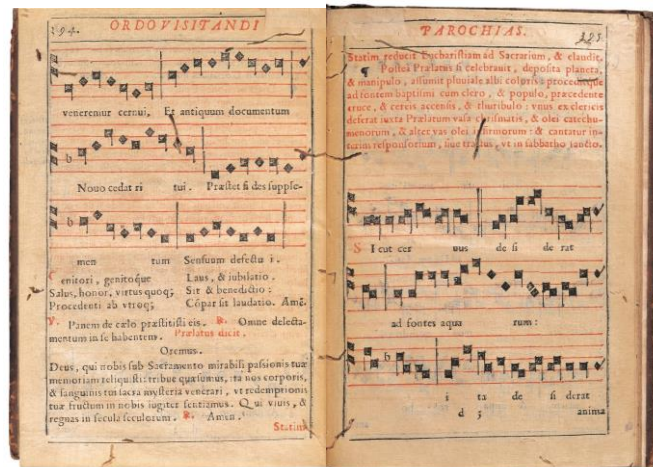 194. ORDO VISITANDI
veneremur cernui, Et antiquum documentum
Nouo cedat ri tui. Præstet fi des supple-
men tum Sensuum defectu i.
Genitori, genitoque Laus, & iubilatio.
Salus, honor, virtus quoq; Sit & benedictio:
Procedenti ab vtroq; Cōpar sit laudatio. Amē.
V. Panem de cælo præstitisti eis. R. Omne delecta-
mentum in se habentem. Prælatus dicit.
Oremus.
Deus, qui nobis sub Sacramento mirabili passionis tuæ
memoriam reliquisti: tribue quæsumus, ita nos corporis,
& sanguinis tui sacra mysteria venerari, vt redemptionis
tuæ fructum in nobis iugiter sentiamus. Qui viuis, &
regnas in secula seculorum. R. Amen.
Statim
PAROCHIAS.
Statim reducit Eucharistiam ad Sacrarium, & claudit.
¶ Postea Prælatus si celebrauit, deposita planeta,
& manipulo, assumit pluuiale albi coloris: proceditque
ad fontem baptismi cum clero, & populo, præcedente
cruce, & cereis accensis, & thuribulo: vnus ex clericis
deferat iuxta Prælatum vasa chrismatis, & olei catechu-
menorum, & alter vas olei infirmorum: & cantatur in-
terim responsorium, siue tractus, vt in sabbatho sancto.
SIcut cer uus de si de rat
ad fontes aqua rum:
i ta de si derat
d 3 anima